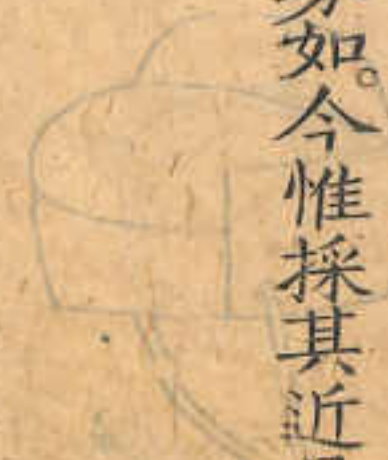 如。今惟採其近